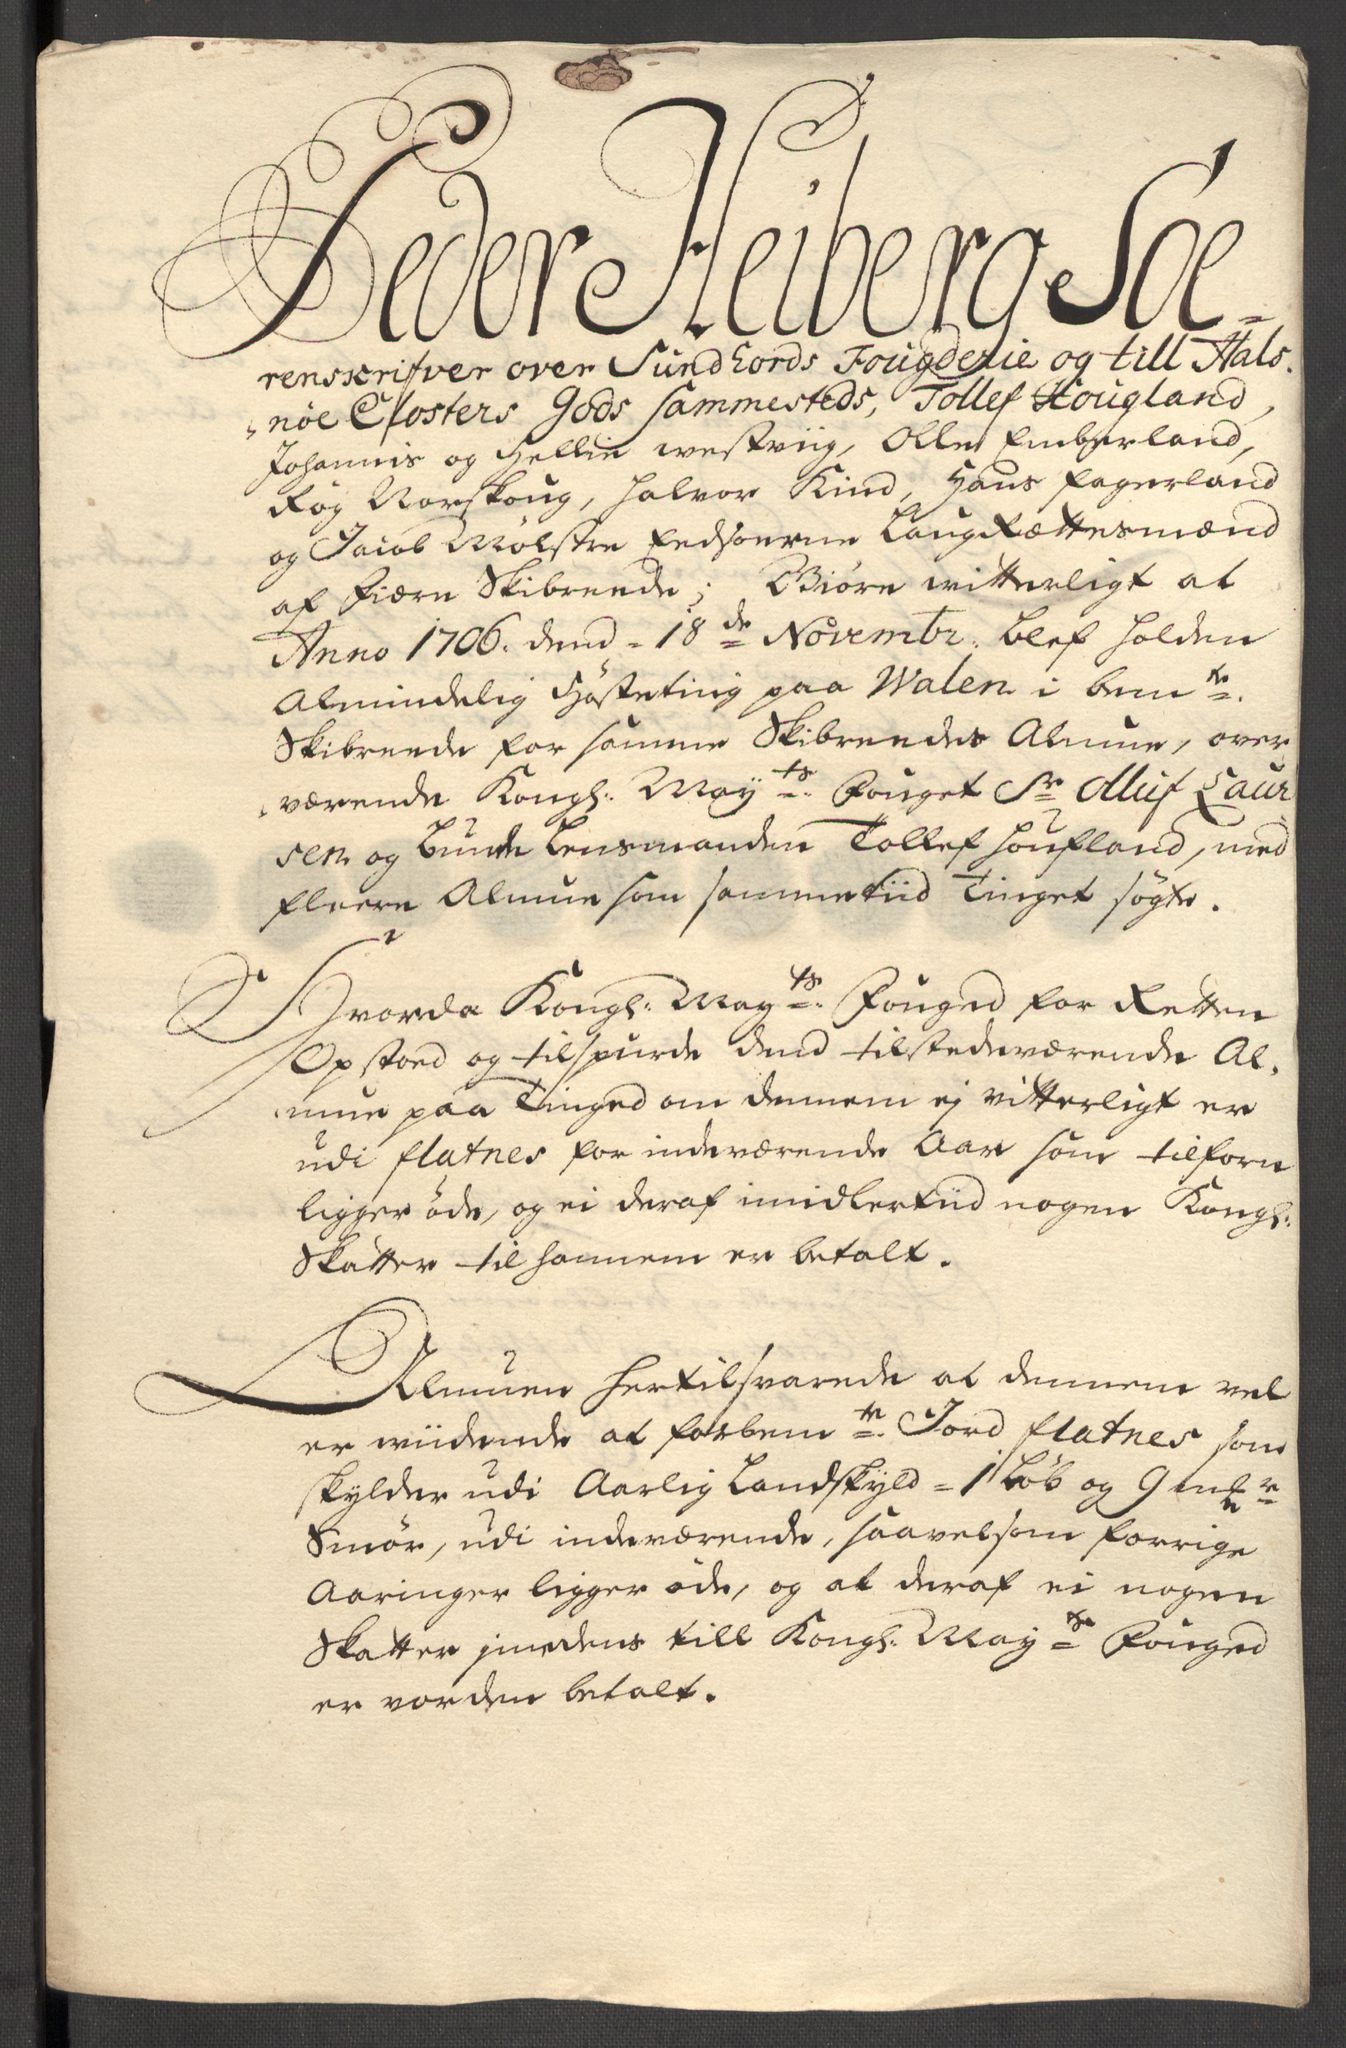 Peder Heiberg Soe=
renskrifver over Sundhords Fougderie og till Hals-
nöe Closters Gods sammesteds, Tollef Hougland,
Johannis og Hellie westviig, Olle Emberland,
Røg Norskoug, Halvor Kind, Hans Fagerland
og Jacob Mølstre Eedsoerne LaugRættesmænd
af Fiære Skibreede; Giøre witterligt at
Anno 1706. dend = 18de Novembr. blef holden
Almindelig Høsteting paa Walen i bemte
Skibreede for samme Skibreedes Almue, over
værende Kongl: Mayts Fouget Sr Oluf Laur
sen og Bunde Lensmanden Tollef Houfland, med
fleere Almue som sammetiid Tinget søgte.
Hvorda Kongl: Mayts Fouged for Retten
Opstoed og tilspurde dend tilstedeværende Al-
mue paa Tinged om dennem ej vitterligt er
udi flatnes for indeværende Aar som tilforn
ligger öde, og ei deraf imidlertiid nogen Kongl:
Skatter til hannem er betalt.
Almuen hertilsvarede at dennem vel
er wiidende at forbemte Jord flatnes som
skylder udi Aarlig Landskyld = 1 Løb og 9 mkr
Smør, udi indeværende, saavelsom forrige
Aaringer ligger øde, og at deraf ei nogen
Skatter jmedens till Kongl: Mayts Fouged
er vorden betalt.